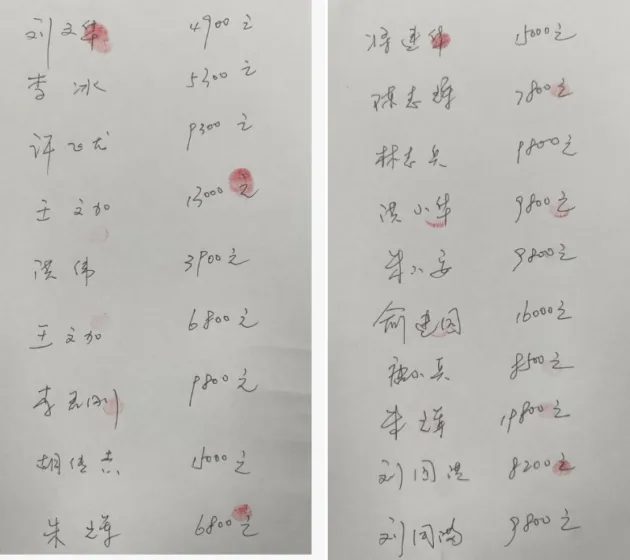 刘文华 4900元
李冰 5300元
许飞龙 9300元
王文加 13000元
洪伟 3900元
王文加 6800元
李 9800元
胡 15000元
朱 6800元
连华 15000元
陈志辉 7800元
林志兵 9800元
洪小华 9800元
朱小安 9800元
俞建国 16000元
小兵 8500元
朱 19800元
刘国洪 8200元
刘国 9800元